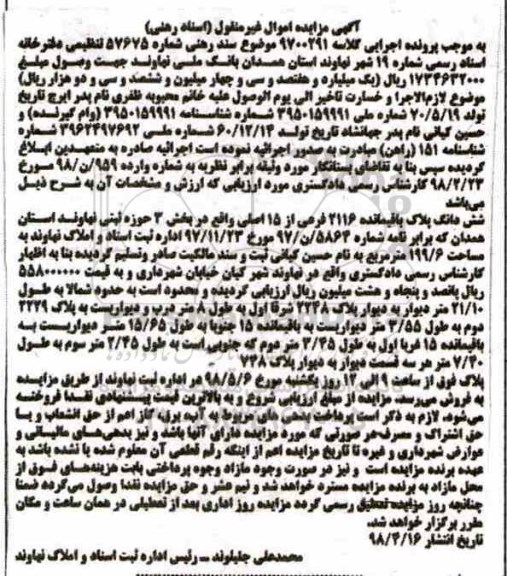 آگهی مزایده اموال غیرمنقول (اسناد رهنی)
به موجب پرونده اجرایی کلاسه ۹۷۰۰۲۹۱ موضوع سند رهنی شماره ۵۷۶۷۵ تنظیمی دفترخانه
اسناد رسمی شماره ۱۹ شهر نهاوند استان همدان بانک ملی نهاوند جهت وصول مبلغ
۱۷۳۴۶۳۲۰۰۰ ریال (یک میلیارد و هفتصد و سی و چهار میلیون و ششصد و سی و دو هزار ریال)
موضوع لازم‌الاجرا و خسارت تاخیر الی یوم الوصول علیه خانم محبوبه ظفری نام پدر ایرج تاریخ
تولد ۷۰/۵/۱۹ شماره ملی ۳۹۵۰۱۵۹۹۹۱ شماره شناسنامه ۳۹۵۰۱۵۹۹۹۱ (وام گیرنده) و
حسین کیانی نام پدر جهانشاد تاریخ تولد ۶۰/۱۲/۱۴ شماره ملی ۳۹۶۲۴۹۷۶۹۲ شماره
شناسنامه ۱۵۱ (راهن) مبادرت به صدور اجرائیه نموده است اجرائیه صادره به متعهدین ابلاغ
گردیده سپس بنا به تقاضای بستانکار مورد وثیقه برابر نظریه به شماره وارده ۹۵۹/ن/۹۸ مورخ
۹۸/۲/۲۳ کارشناس رسمی دادگستری مورد ارزیابی که ارزش و مشخصات آن به شرح ذیل
می‌باشد
شش دانگ پلاک باقیمانده ۲۱۱۶ فرعی از ۱۵ اصلی واقع در بخش ۳ حوزه ثبتی نهاوند استان
همدان که برابر نامه شماره ۵۸۶۴/ن/۹۷ مورخ ۹۷/۱۱/۲۳ اداره ثبت اسناد و املاک نهاوند به
مساحت ۱۹۹/۶ مترمربع به نام حسین کیانی ثبت و سند مالکیت صادر وتسلیم گردیده بنا به اظهار
کارشناس رسمی دادگستری واقع در نهاوند شهر کیان خیابان شهرداری و به قیمت ۵۵۸۰۰۰۰۰۰
ریال پانصد و پنجاه و هشت میلیون ریال ارزیابی گردیده و محدود است به حدود شمالا به طول
۲۱/۱۰ متر دیوار به دیوار پلاک ۳۳۴۸ شرقا اول به طول ۸ متر درب و دیواریست به پلاک ۲۲۲۹
دوم به طول ۳/۵۵ متر دیواریست به باقیمانده ۱۵ جنوبا به طول ۱۵/۶۵ متر دیواریست به
باقیمانده ۱۵ غربا اول به طول ۳/۴۵ متر دوم که جنوبی است به طول ۲/۴۵ متر سوم به طول
۷/۳۰ متر هر سه قسمت دیوار به دیوار پلاک ۷۴۸
پلاک فوق از ساعت ۹ الی ۱۲ روز یکشنبه مورخ ۹۸/۵/۶ در اداره ثبت نهاوند از طریق مزایده
به فروش می‌رسد. مزایده از مبلغ ارزیابی شروع و به بالاترین قیمت پیشنهادی نقدا فروخته
می‌شود. لازم به ذکر است پرداخت بدهی های مربوط به آب، برق، گاز اعم از حق انشعاب و یا
حق اشتراک و مصرف در صورتی که مورد مزایده دارای آنها باشد و نیز بدهی‌های مالیاتی و
عوارض شهرداری و غیره تا تاریخ مزایده اعم از اینکه رقم قطعی آن معلوم شده یا نشده باشد به
عهده برنده مزایده است و نیز در صورت وجود مازاد وجوه پرداختی بابت هزینه‌های فوق از
محل مازاد به برنده مزایده مسترد خواهد شد و نیم عشر و حق مزایده نقدا وصول می‌گردد ضمنا
چنانچه روز مزایده تعطیل رسمی گردد مزایده روز اداری بعد از تعطیلی در همان ساعت و مکان
مقرر برگزار خواهد شد.
تاریخ انتشار ۹۸/۴/۱۶
محمدعلی جلیلوند ــ رئیس اداره ثبت اسناد و املاک نهاوند